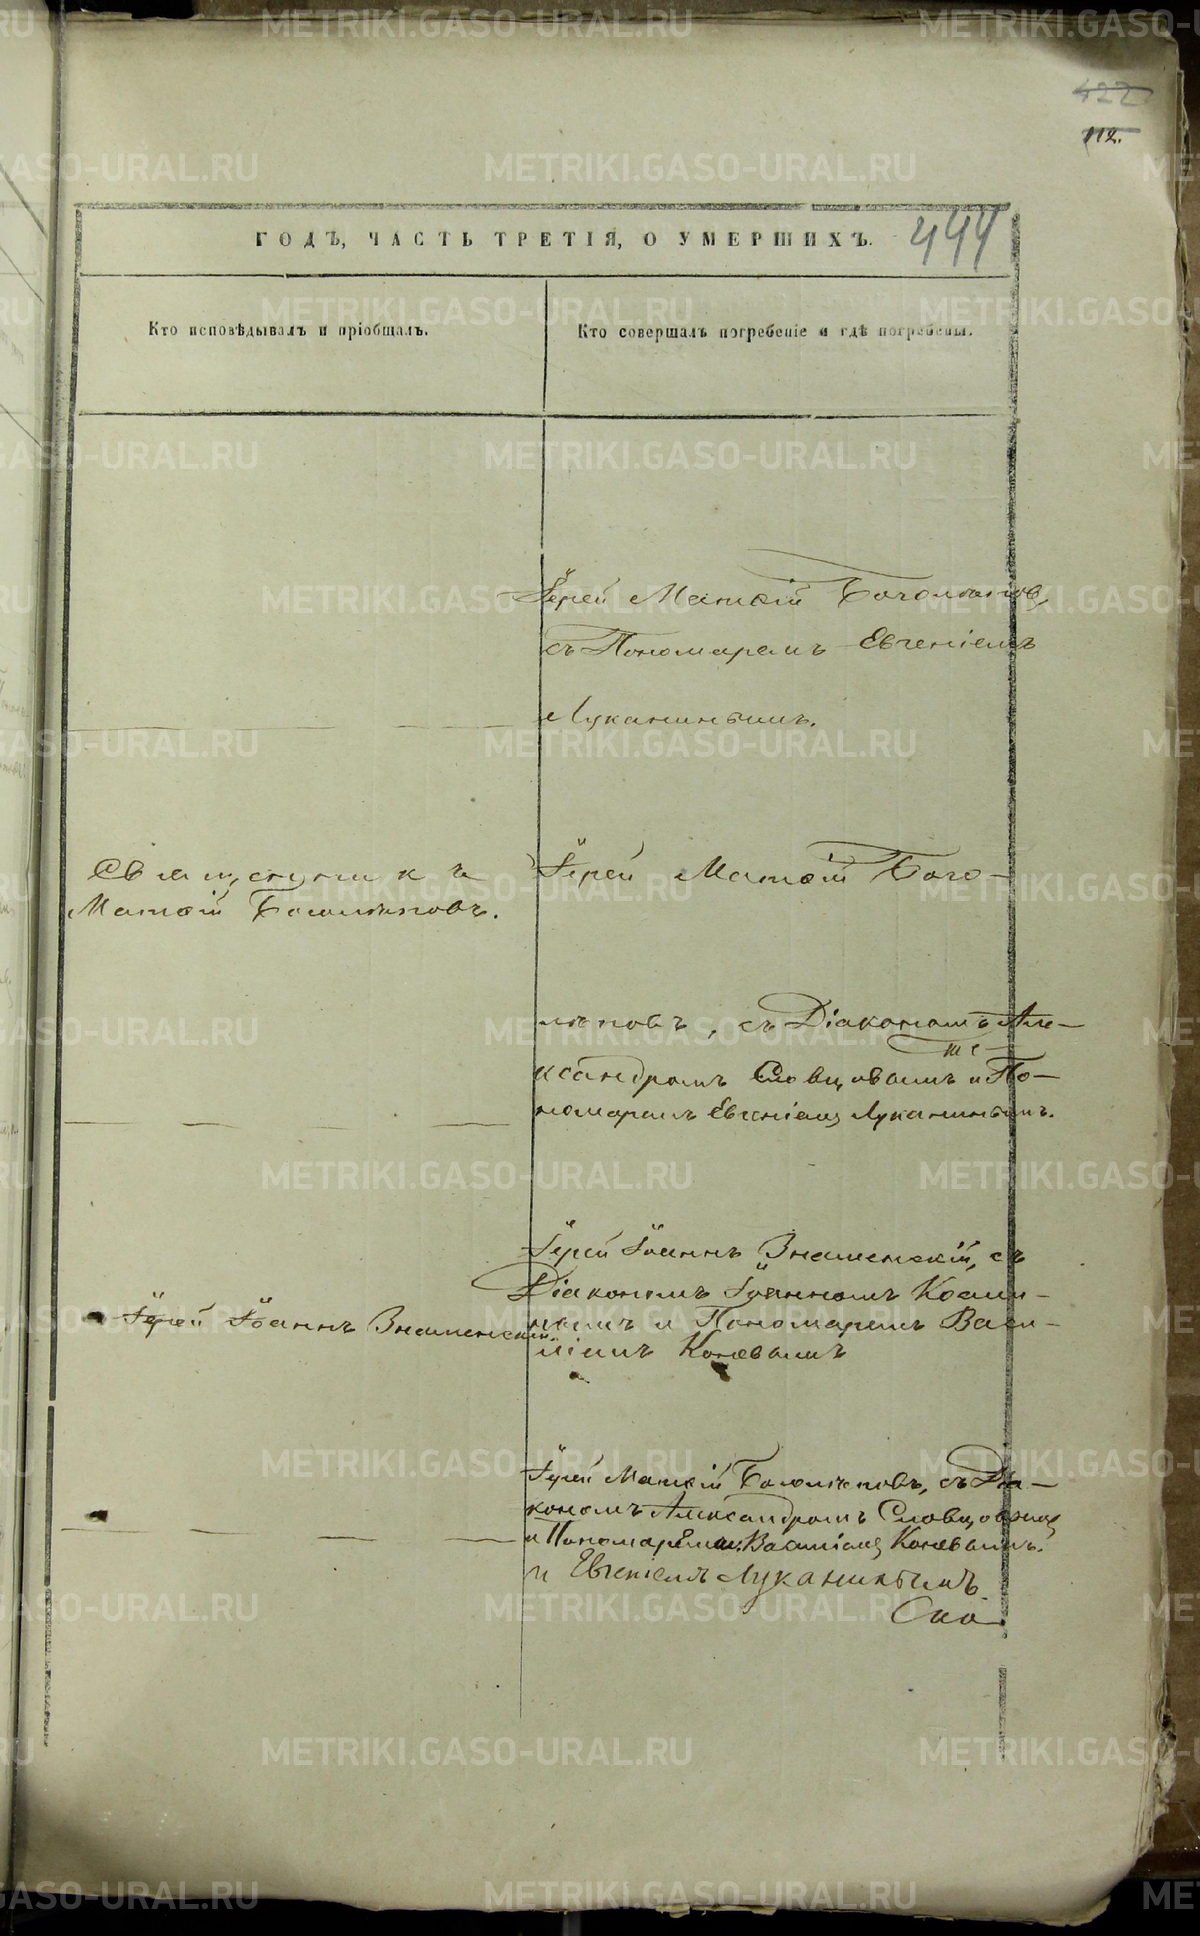 422
112.
444
ГОДЪ, ЧАСТЬ ТРЕТІЯ, О УМЕРШИХЪ.
Кто исповѣдывалъ и пріобщалъ.
Кто совершалъ погребеніе и гдѣ погребены.
Іерей Матѳій Боголѣповъ,
съ Пономаремъ Евгеніемъ
Луканинымъ.
Священникъ
Матѳій Боголѣповъ.
Іерей Матѳій Бого-
лѣповъ, съ Діакономъ Але-
ксандромъ Словцовымъ и По-
номаремъ Евгеніемъ Луканинымъ.
Іерей Іоаннъ Знаменскій
Іерей Іоаннъ Знаменскій, съ
Діакономъ Іоанномъ
и Пономаремъ Васи-
ліемъ Коневымъ
Іерей Матѳій Боголѣповъ, съ Діа-
кономъ Александромъ Словцовымъ
и Пономарями Василіемъ Коневымъ.
и Евгеніемъ Луканинымъ
METRIKI.GASO-URAL.RU